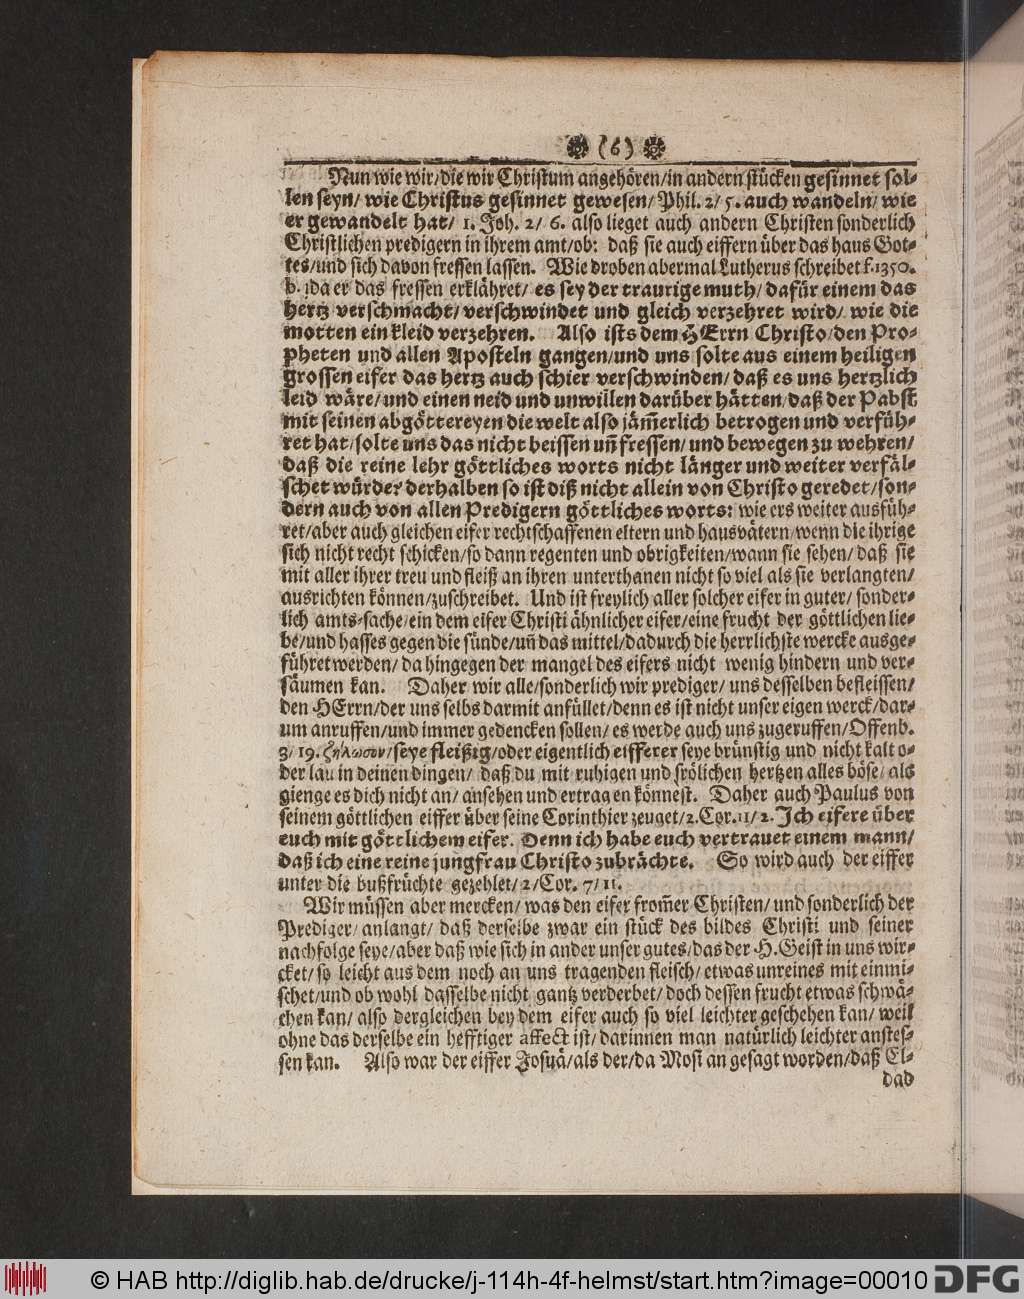 ❁ (6) ❁
Nun wie wir/die wir Christum angehören/in andern stücken gesinnet sol-
len seyn/ wie Christus gesinnet gewesen/ Phil. 2/ 5. auch wandeln/ wie
er gewandelt hat/ 1. Joh. 2/ 6. also lieget auch andern Christen sonderlich
Christlichen predigern in ihrem amt/ob: daß sie auch eiffern über das haus Got-
tes/und sich davon fressen lassen. Wie droben abermal Lutherus schreibet f.1350.
b. da er das fressen erklähret/ es sey der traurige muth/ dafür einem das
hertz verschmacht/ verschwindet und gleich verzehret wird/ wie die
motten ein kleid verzehren. Also ists dem HErrn Christo/den Pro-
pheten und allen Aposteln gangen/und uns solte aus einem heiligen
grossen eifer das hertz auch schier verschwinden/ daß es uns hertzlich
leid wäre/ und einen neid und unwillen darüber hätten/ daß der Pabst
mit seinen abgöttereyen die welt also jäm̃erlich betrogen und verfüh-
ret hat/ solte uns das nicht beissen uñ fressen/ und bewegen zu wehren/
daß die reine lehr göttliches worts nicht länger und weiter verfäl-
schet würde? derhalben so ist diß nicht allein von Christo geredet/ son-
dern auch von allen Predigern göttliches worts: wie ers weiter ausfüh-
ret/aber auch gleichen eifer rechtschaffenen eltern und hausvätern/wenn die ihrige
sich nicht recht schicken/so dann regenten und obrigkeiten/wann sie sehen/ daß sie
mit aller ihrer treu und fleiß an ihren unterthanen nicht so viel als sie verlangten/
ausrichten können/zuschreibet. Und ist freylich aller solcher eifer in guter/ sonder-
lich amts-sache/ein dem eifer Christi ähnlicher eifer/eine frucht der göttlichen lie-
be/und hasses gegen die sünde/uñ das mittel/dadurch die herrlichste wercke ausge-
führet werden/ da hingegen der mangel des eifers nicht wenig hindern und ver-
säumen kan. Daher wir alle/sonderlich wir prediger/ uns desselben befleissen/
den HErrn/der uns selbs darmit anfüllet/denn es ist nicht unser eigen werck/dar-
um anruffen/und immer gedencken sollen/ es werde auch uns zugeruffen/Offenb.
3/ 19. ζήλωσον/seye fleißig/oder eigentlich eifferer seye brünstig und nicht kalt o-
der lau in deinen dingen/ daß du mit ruhigen und frölichen hertzen alles böse/ als
gienge es dich nicht an/ ansehen und ertragen könnest. Daher auch Paulus von
seinem göttlichen eiffer über seine Corinthier zeuget/2.Cor.11/2. Ich eifere über
euch mit göttlichem eifer. Denn ich habe euch vertrauet einem mann/
daß ich eine reine jungfrau Christo zubrächte. So wird auch der eiffer
unter die bußfrüchte gezehlet/ 2/Cor. 7/ 11.
Wir müssen aber mercken/ was den eifer from̃er Christen/ und sonderlich der
Prediger/ anlangt/ daß derselbe zwar ein stück des bildes Christi und seiner
nachfolge seye/aber daß wie sich in ander unser gutes/das der H.Geist in uns wir-
cket/ so leicht aus dem noch an uns tragenden fleisch/ etwas unreines mit einmi-
schet/und ob wohl dasselbe nicht gantz verderbet/ doch dessen frucht etwas schwä-
chen kan/ also dergleichen bey dem eifer auch so viel leichter geschehen kan/ weil
ohne das derselbe ein hefftiger affect ist/ darinnen man natürlich leichter anstes-
sen kan. Also war der eiffer Josuä/als der/da Mosi angesagt worden/daß El-
dad
© HAB http://diglib.hab.de/drucke/j-114h-4f-helmst/start.htm?image=00010 DFG